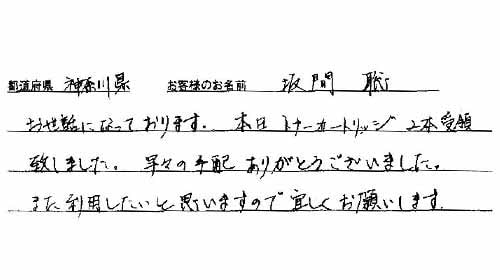 都道府県 神奈川県 お客様のお名前 坂間 聡
お世話になっております。本日トナーカートリッジ2本受領
致しました。早々の手配ありがとうございました。
また利用したいと思いますので宜しくお願いします。